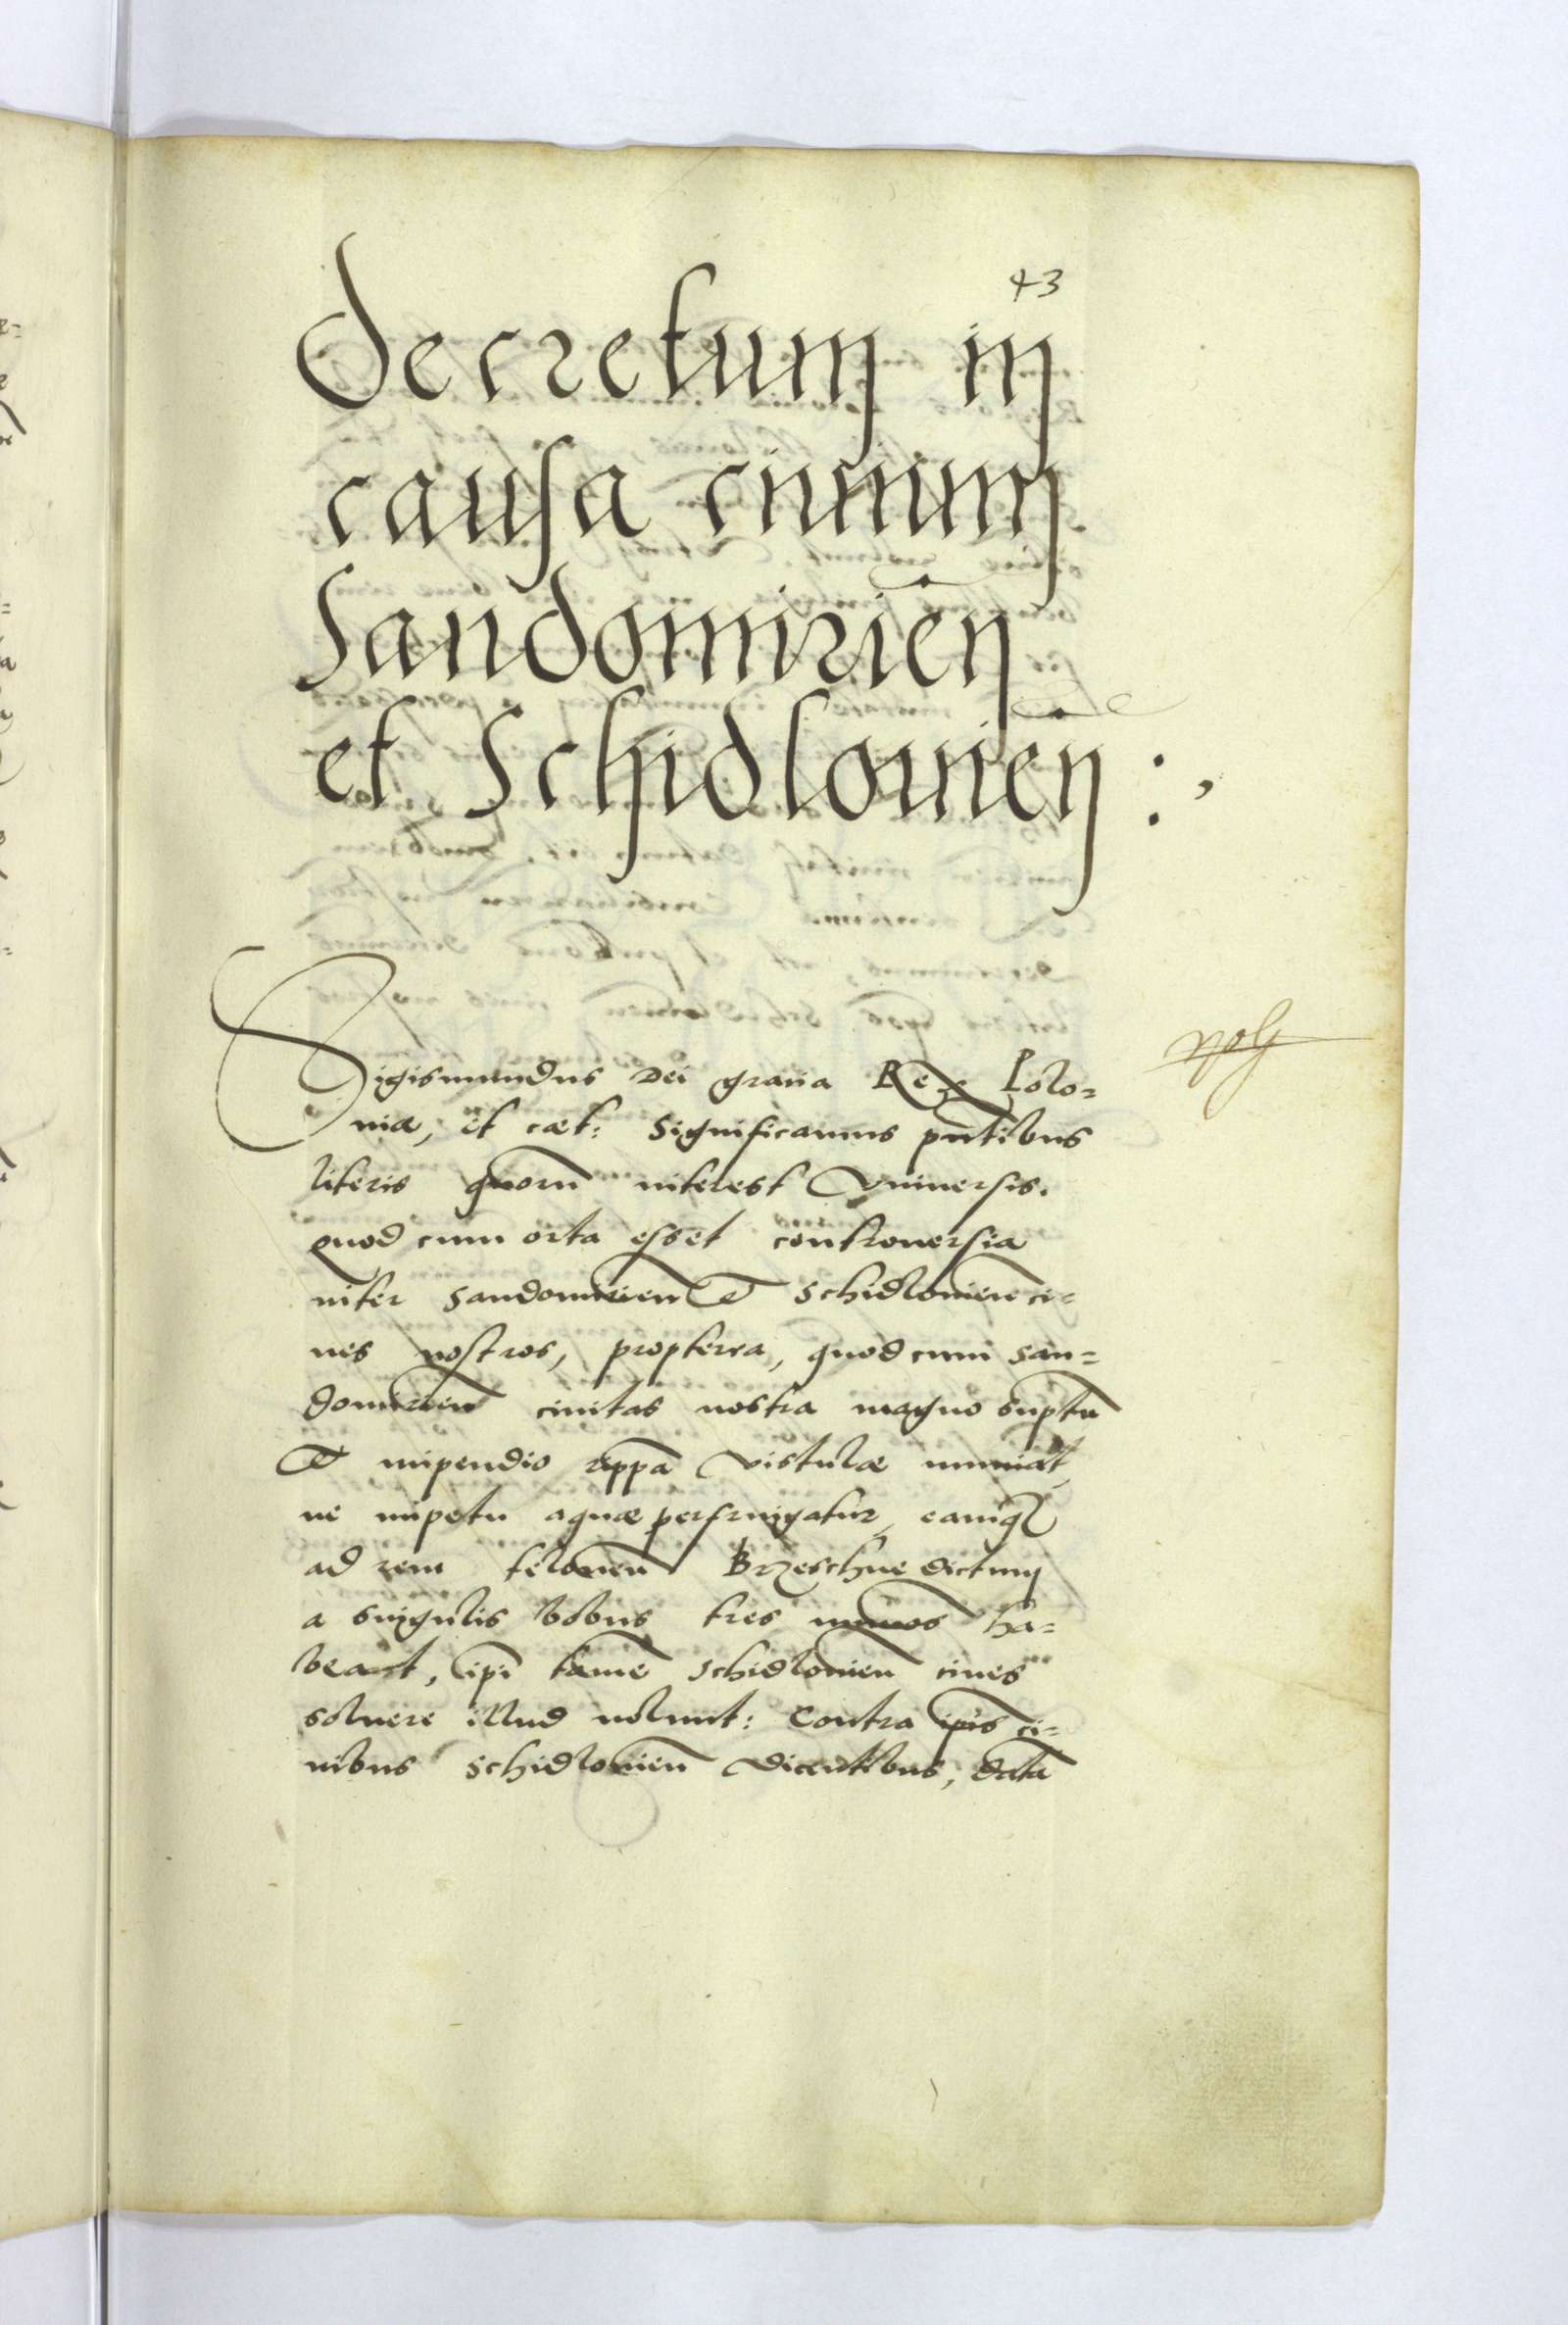 43
Decretum in
causa ciuium
Sandomirieñ
et Schidlouieñ :,
Sigismundus Dei gratia Rex Polo=
niæ, et cæt: Significamus pñtibus
literis quorū interest Vniuersis.
quod cum orta esset controuersia
inter Sandomirień et Schidlouień ci=
ues nostros, propterea, quod cum San=
domirień ciuitas nostra magno suptu
et impendio rippā Vistulæ muniat,
ne impetu aquæ perfringatur, eamq
ad rem teloneū Brzeschne dictum
a singulis bobus tres nūmos ha=
beant, ipī tamē Schidlouień ciues
soluere illud nolunt: Contra ipīs ci=
uibus Schidlouień dicentibus, datā